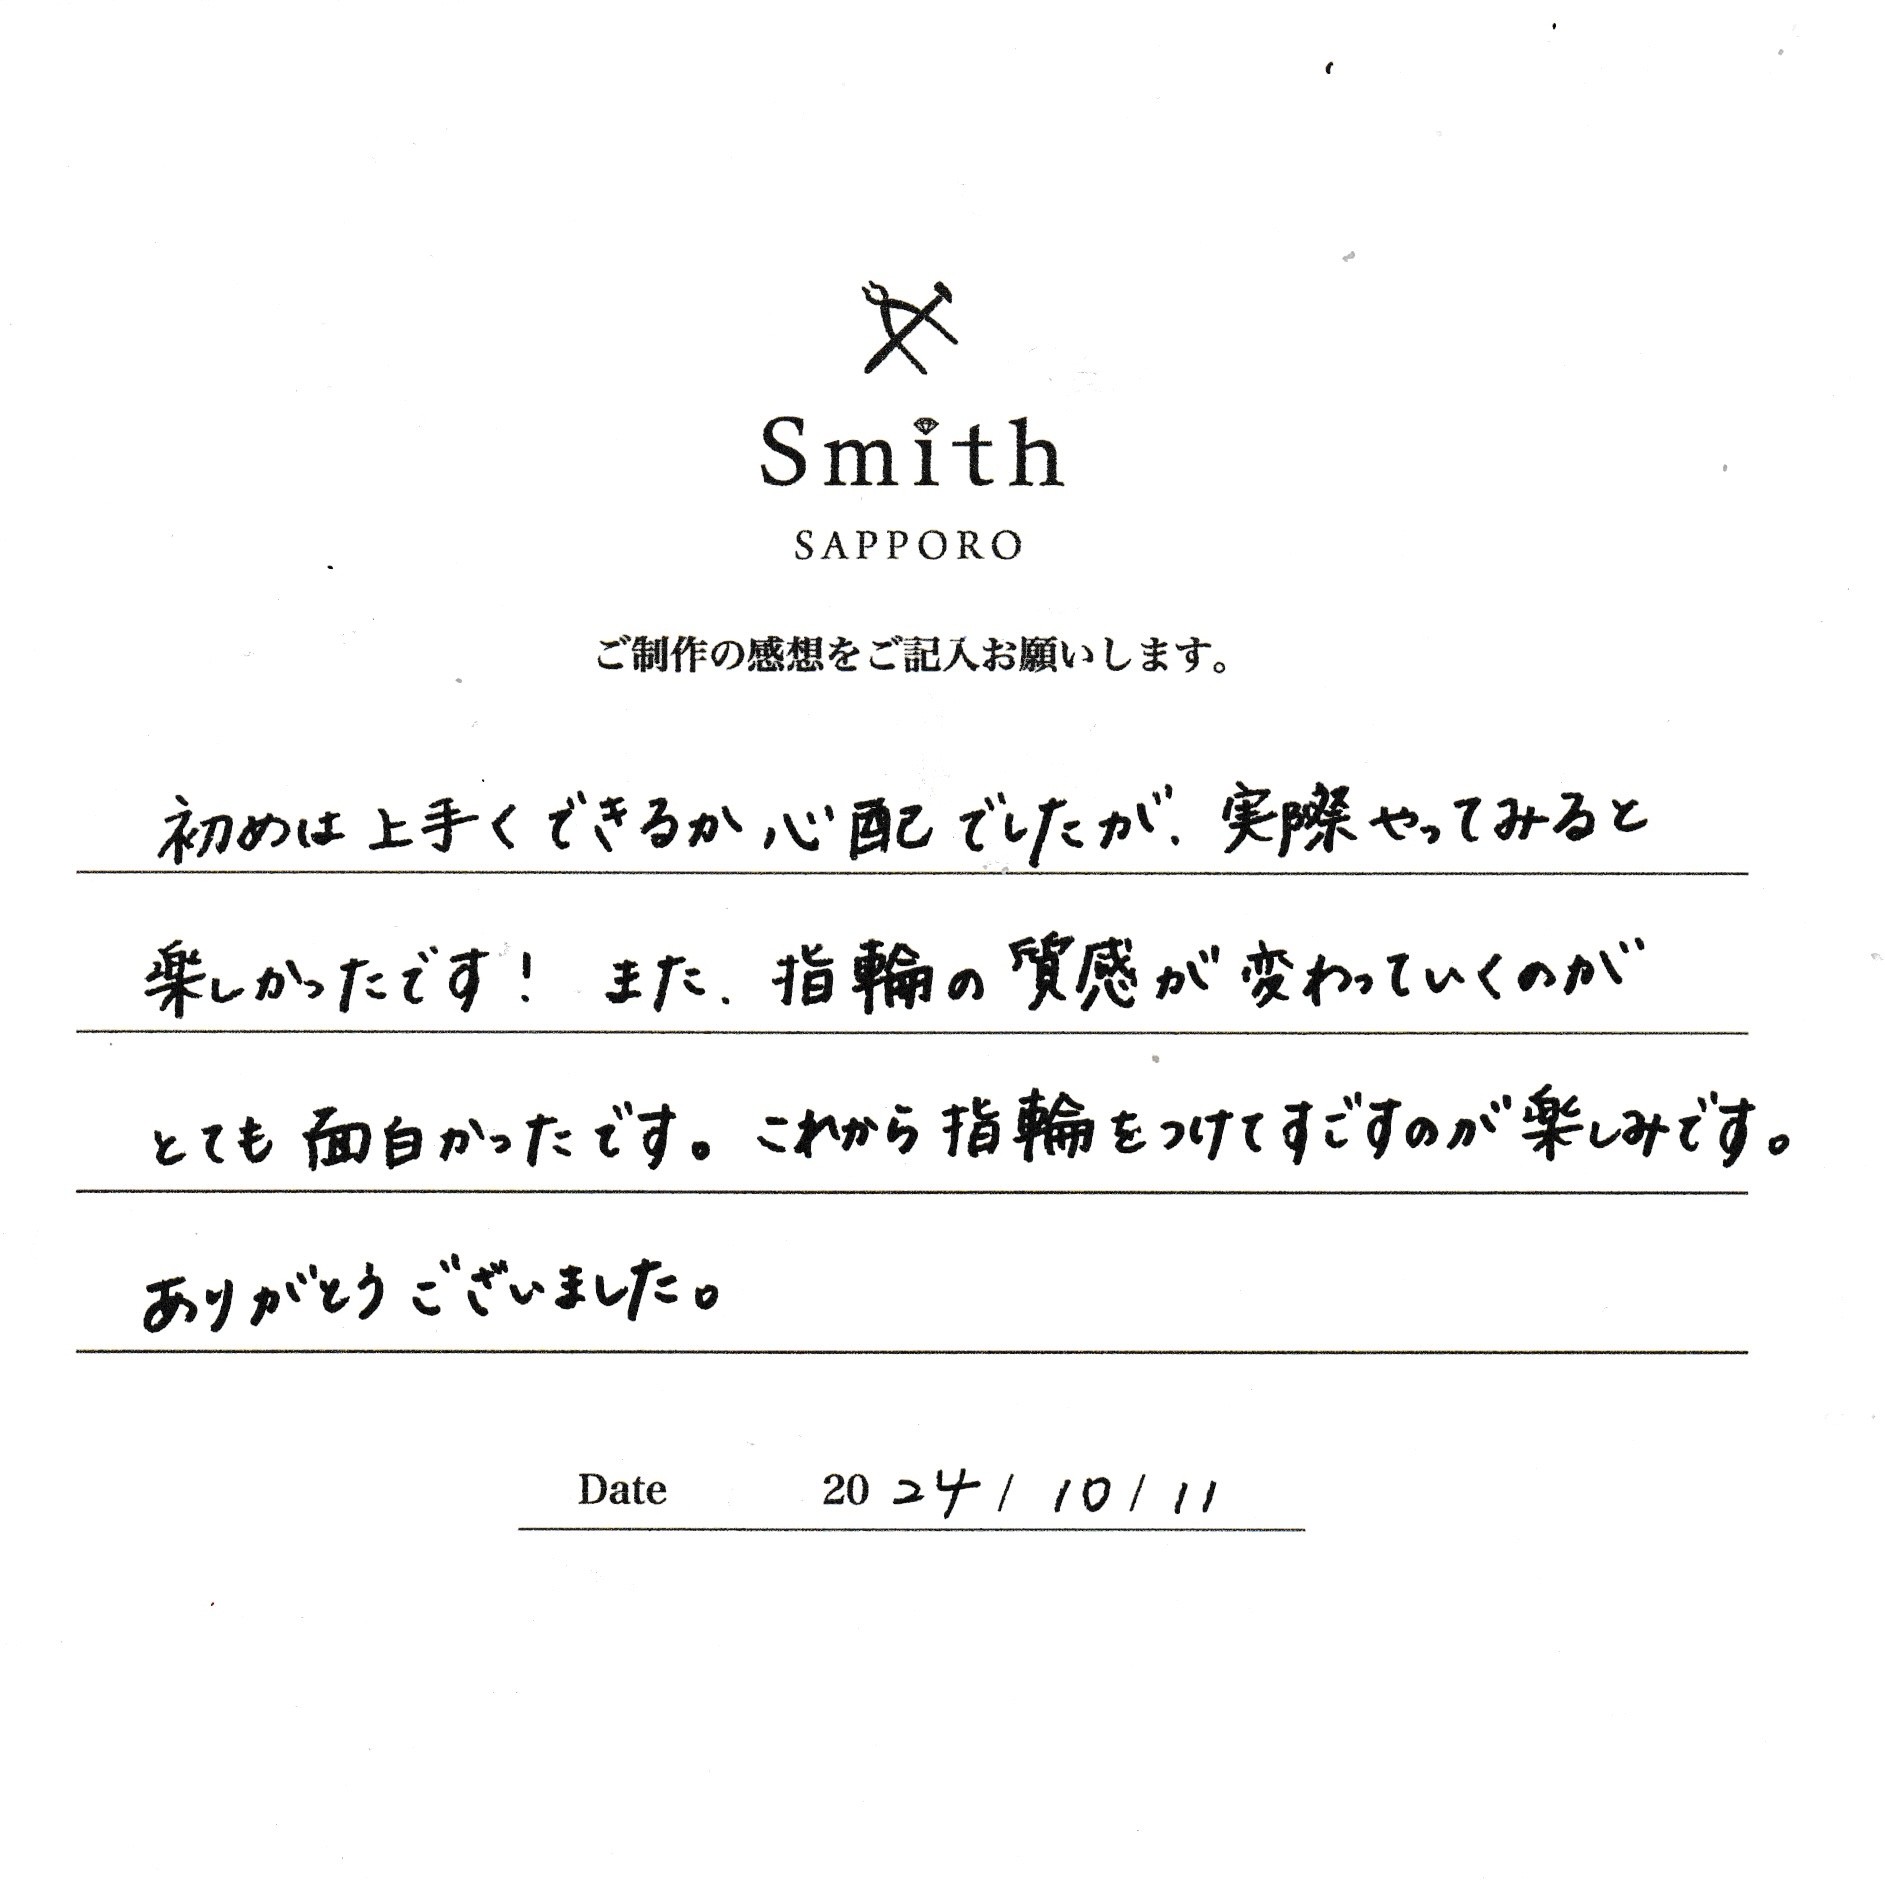 Smith
SAPPORO
ご制作の感想をご記入お願いします。
初めは上手くできるか心配でしたが、実際やってみると
楽しかったです！ また、指輪の質感が変わっていくのが
とても面白かったです。これから指輪をつけてすごすのが楽しみです。
ありがとうございました。
Date 2024/10/11